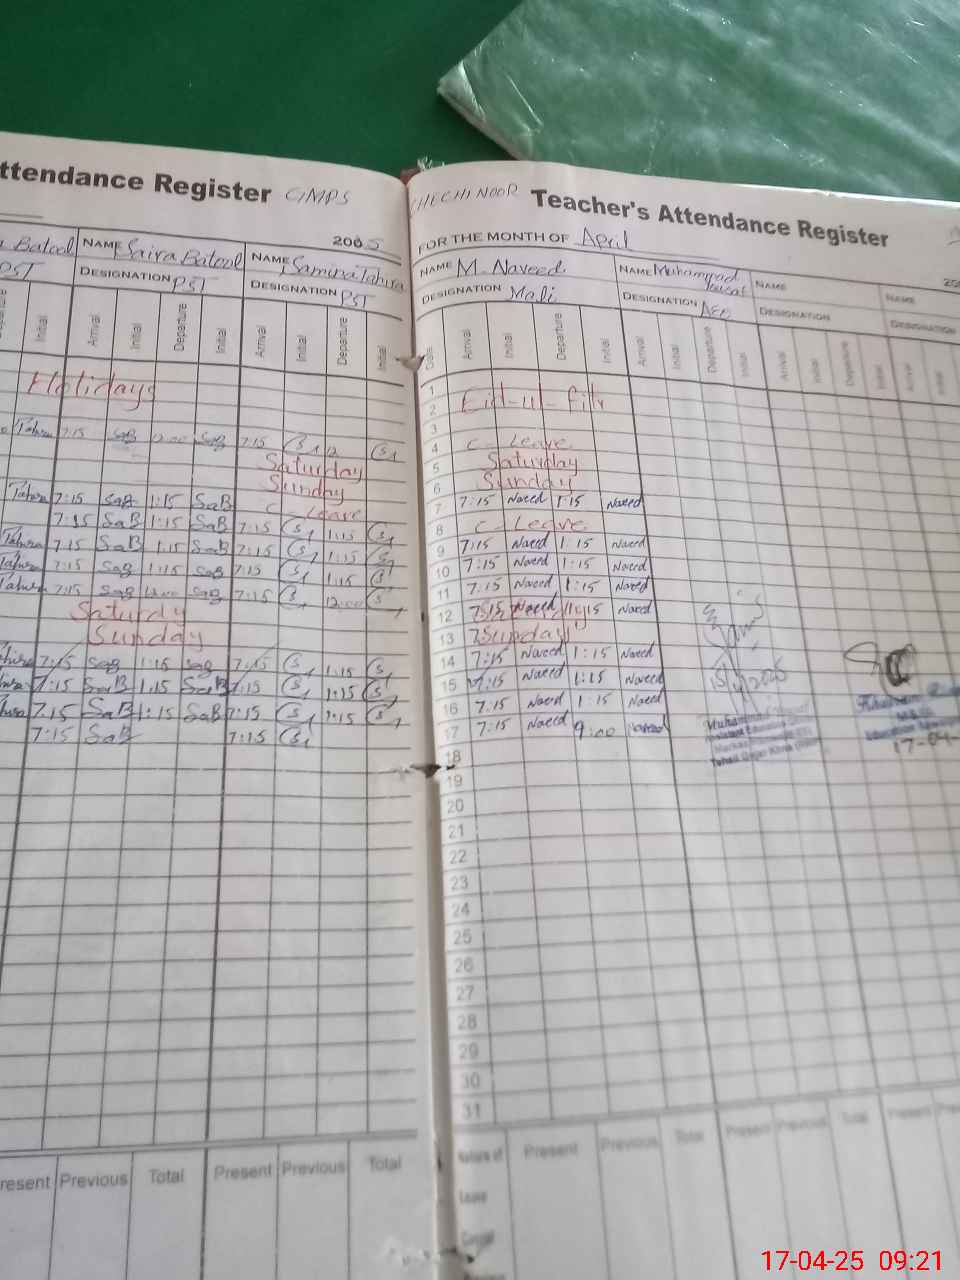 ttendance Register GMPS
2005
Batool NAME Saira Batool NAME Samina Tahira
PST DESIGNATION PST DESIGNATION PST
Initial Arrival Initial Departure Initial Arrival Initial Departure Initial
Holidays
Tahira 7:15 SaB 12:00 SaB 7:15
Saturday
Sunday
Tahira 7:15 SaB 1:15 SaB C - Leave
7:15 SaB 1:15 SaB 7:15 1:15
Tahira 7:15 SaB 1:15 SaB 7:15 1:15
Tahira 7:15 SaB 1:15 SaB 7:15 1:15
Tahira 7:15 SaB 12:00 SaB 7:15 12:00
Saturdy
Sunday
7:15 SaB 1:15 SaB 7:15 1:15
7:15 SaB 1:15 SaB 7:15 1:15
7:15 SaB 1:15 SaB 7:15 1:15
7:15 SaB 7:15
resent Previous Total Present Previous Total
CHECHI NOOR Teacher's Attendance Register
FOR THE MONTH OF April
NAME M. Naveed NAME Muhammad NAME NAME
DESIGNATION Mali DESIGNATION AEO DESIGNATION DESIGNATION
Date Arrival Initial Departure Initial Arrival Initial Departure Initial Arrival Initial Departure Initial Arrival Initial
1
2 Eid-ul-fitr
3
4 C - Leave
5 Saturday
6 Sunday
7 7:15 Naveed 1:15 Naveed
8 C - Leave
9 7:15 Naveed 1:15 Naveed
10 7:15 Naveed 1:15 Naveed
11 7:15 Naveed 1:15 Naveed
12 7:15 Naveed 1:15 Naveed
13 Sunday
14 7:15 Naveed 1:15 Naveed
15 7:15 Naveed 1:15 Naveed
16 7:15 Naveed 1:15 Naveed
17 7:15 Naveed 9:00 Naveed
18
19
20
21
22
23
24
25
26
27
28
29
30
31
Present Previous Total Present Previous Total Present
Leave
17-04-25 09:21